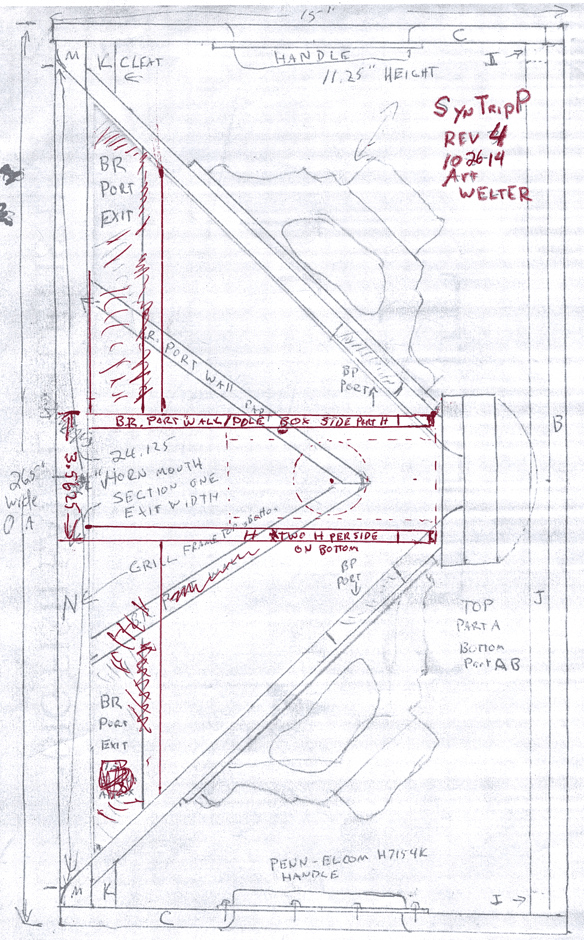 15"
M
K
CLEAT
HANDLE
C
I
11.25" HEIGHT
SYNTRIPP
REV 4
10-26-14
Art
WELTER
BR
PORT
EXIT
B.R. PORT WALL
BP
PORT
B.R. PORT WALL/POLE BOX SIDE Part H
B
24.125
HORN MOUTH
SECTION ONE
EXIT WIDTH
3.5625
26.5"
wide
OA
H TWO H PER SIDE
ON BOTTOM
GRILL FRAME
BP
PORT
N
J
TOP
PART A
BOTTOM
Part AB
BR
PORT
EXIT
PENN-ELCOM H7154K
HANDLE
M
K
I
C